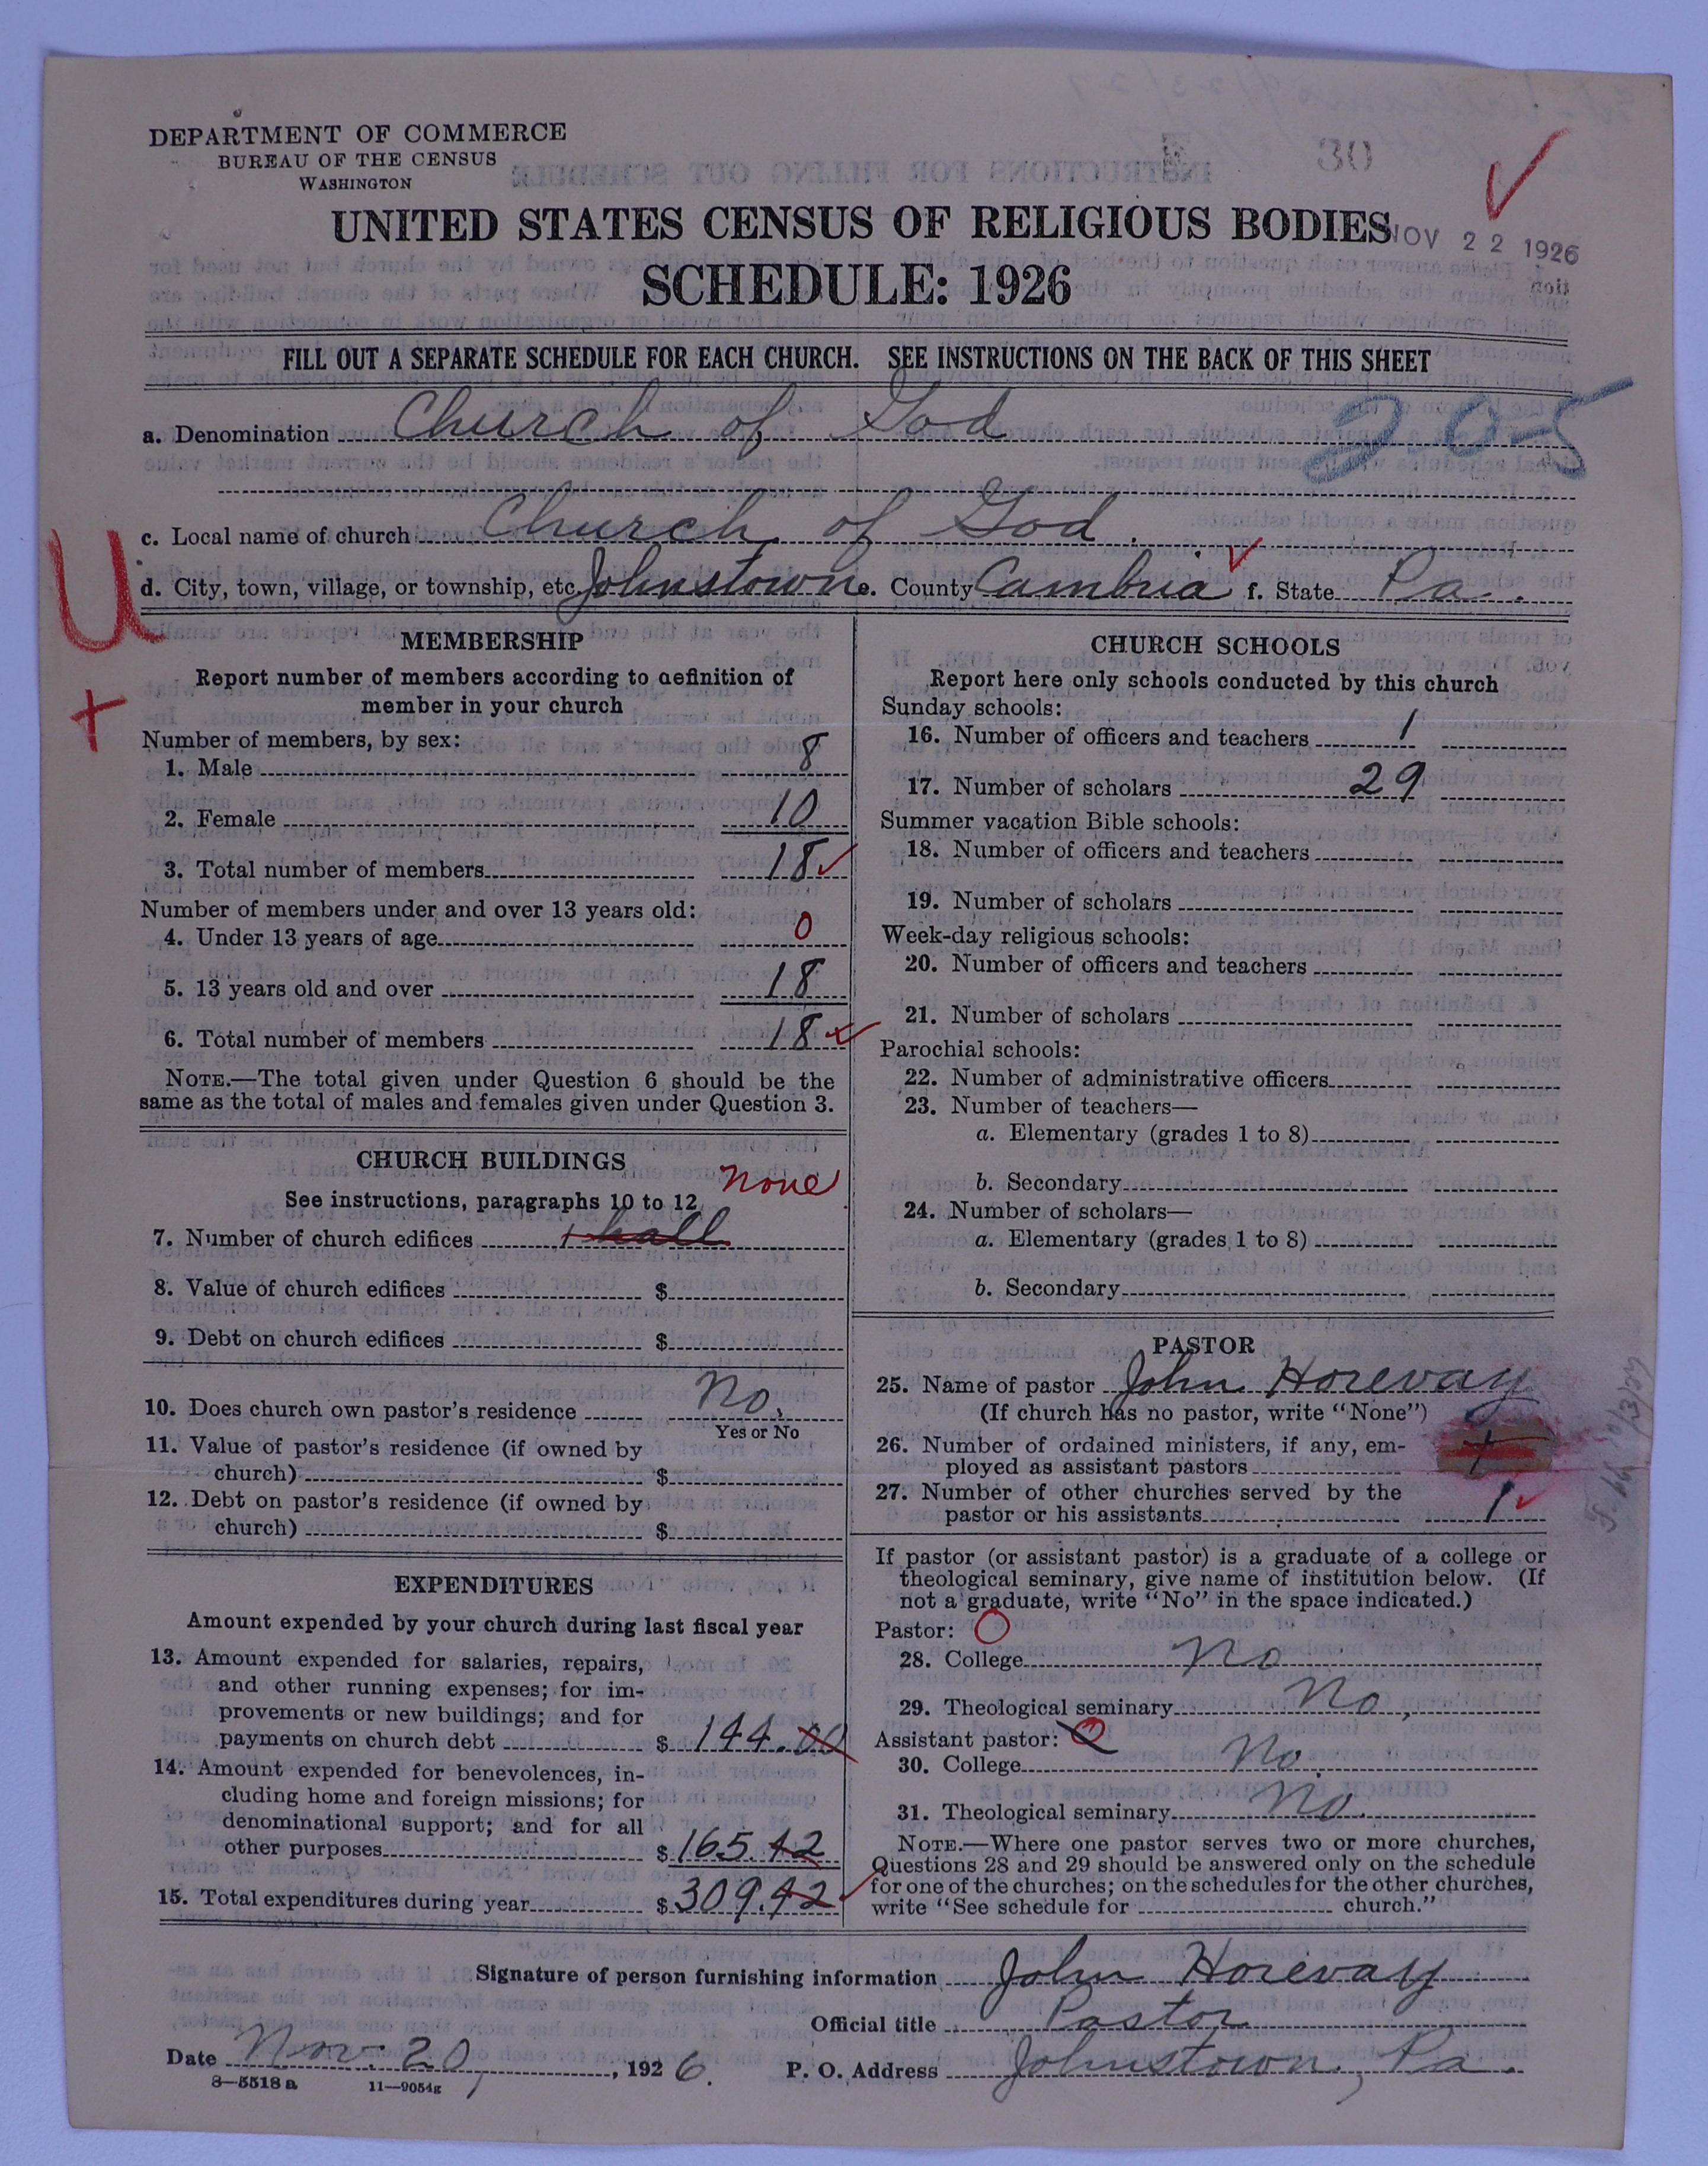 DEPARTMENT OF COMMERCE
BUREAU OF THE CENSUS
WASHINGTON
30
UNITED STATES CENSUS OF RELIGIOUS BODIES
NOV 22 1926
SCHEDULE: 1926
FILL OUT A SEPARATE SCHEDULE FOR EACH CHURCH. SEE INSTRUCTIONS ON THE BACK OF THIS SHEET
a. Denomination Church of God
205
c. Local name of church Church of God.
U
d. City, town, village, or township, etc. Johnstown e. County Cambria f. State Pa.
+
MEMBERSHIP
Report number of members according to definition of
member in your church
Number of members, by sex:
1. Male 8
2. Female 10
3. Total number of members 18
Number of members under and over 13 years old:
4. Under 13 years of age 0
5. 13 years old and over 18
6. Total number of members 18
NOTE.—The total given under Question 6 should be the
same as the total of males and females given under Question 3.
CHURCH BUILDINGS
none
See instructions, paragraphs 10 to 12
7. Number of church edifices 1 hall
8. Value of church edifices $
9. Debt on church edifices $
10. Does church own pastor's residence No.
Yes or No
11. Value of pastor's residence (if owned by
church) $
12. Debt on pastor's residence (if owned by
church) $
EXPENDITURES
Amount expended by your church during last fiscal year
13. Amount expended for salaries, repairs,
and other running expenses; for im-
provements or new buildings; and for
payments on church debt $ 144.00
14. Amount expended for benevolences, in-
cluding home and foreign missions; for
denominational support; and for all
other purposes $ 165.42
15. Total expenditures during year $ 309.42
CHURCH SCHOOLS
Report here only schools conducted by this church
Sunday schools:
16. Number of officers and teachers 1
17. Number of scholars 29
Summer vacation Bible schools:
18. Number of officers and teachers
19. Number of scholars
Week-day religious schools:
20. Number of officers and teachers
21. Number of scholars
Parochial schools:
22. Number of administrative officers
23. Number of teachers—
a. Elementary (grades 1 to 8)
b. Secondary
24. Number of scholars—
a. Elementary (grades 1 to 8)
b. Secondary
PASTOR
25. Name of pastor John Horevay
(If church has no pastor, write "None")
26. Number of ordained ministers, if any, em-
ployed as assistant pastors
27. Number of other churches served by the
pastor or his assistants 1
If pastor (or assistant pastor) is a graduate of a college or
theological seminary, give name of institution below. (If
not a graduate, write "No" in the space indicated.)
Pastor: O
28. College No
29. Theological seminary No.
Assistant pastor: O
30. College No.
31. Theological seminary No.
NOTE.—Where one pastor serves two or more churches,
Questions 28 and 29 should be answered only on the schedule
for one of the churches; on the schedules for the other churches,
write "See schedule for church."
Signature of person furnishing information John Horevay
Official title Pastor
Date Nov. 20, 1926. P. O. Address Johnstown, Pa.
8—5518 a 11—9054g